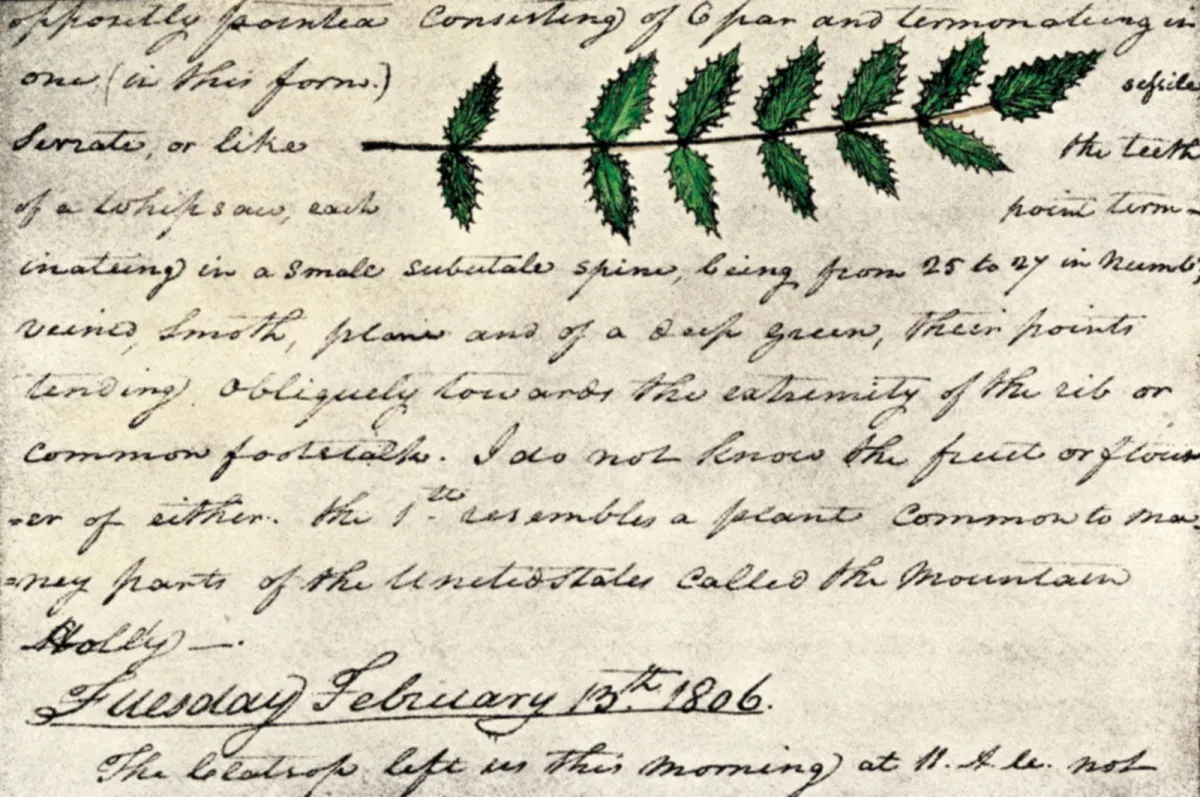 oppositly pointed Consisting of 6 par and termonateing in
one (in this form.) sessile
Serrate, or like the teeth
of a whipsaw, each point term-
inateing in a small subutale spine, being from 25 to 27 in Numb,
veined, smoth, plane and of a deep green, their points
tending obliquely towards the extremity of the rib or
common footstalk. I do not know the fruit or flow
=er of either. the 1st resembles a plant common to ma-
=ney parts of the United States called the Mountain
Holly —.
Tuesday February 13th 1806.
The Clatsop left us this morning at 11. A.M. not